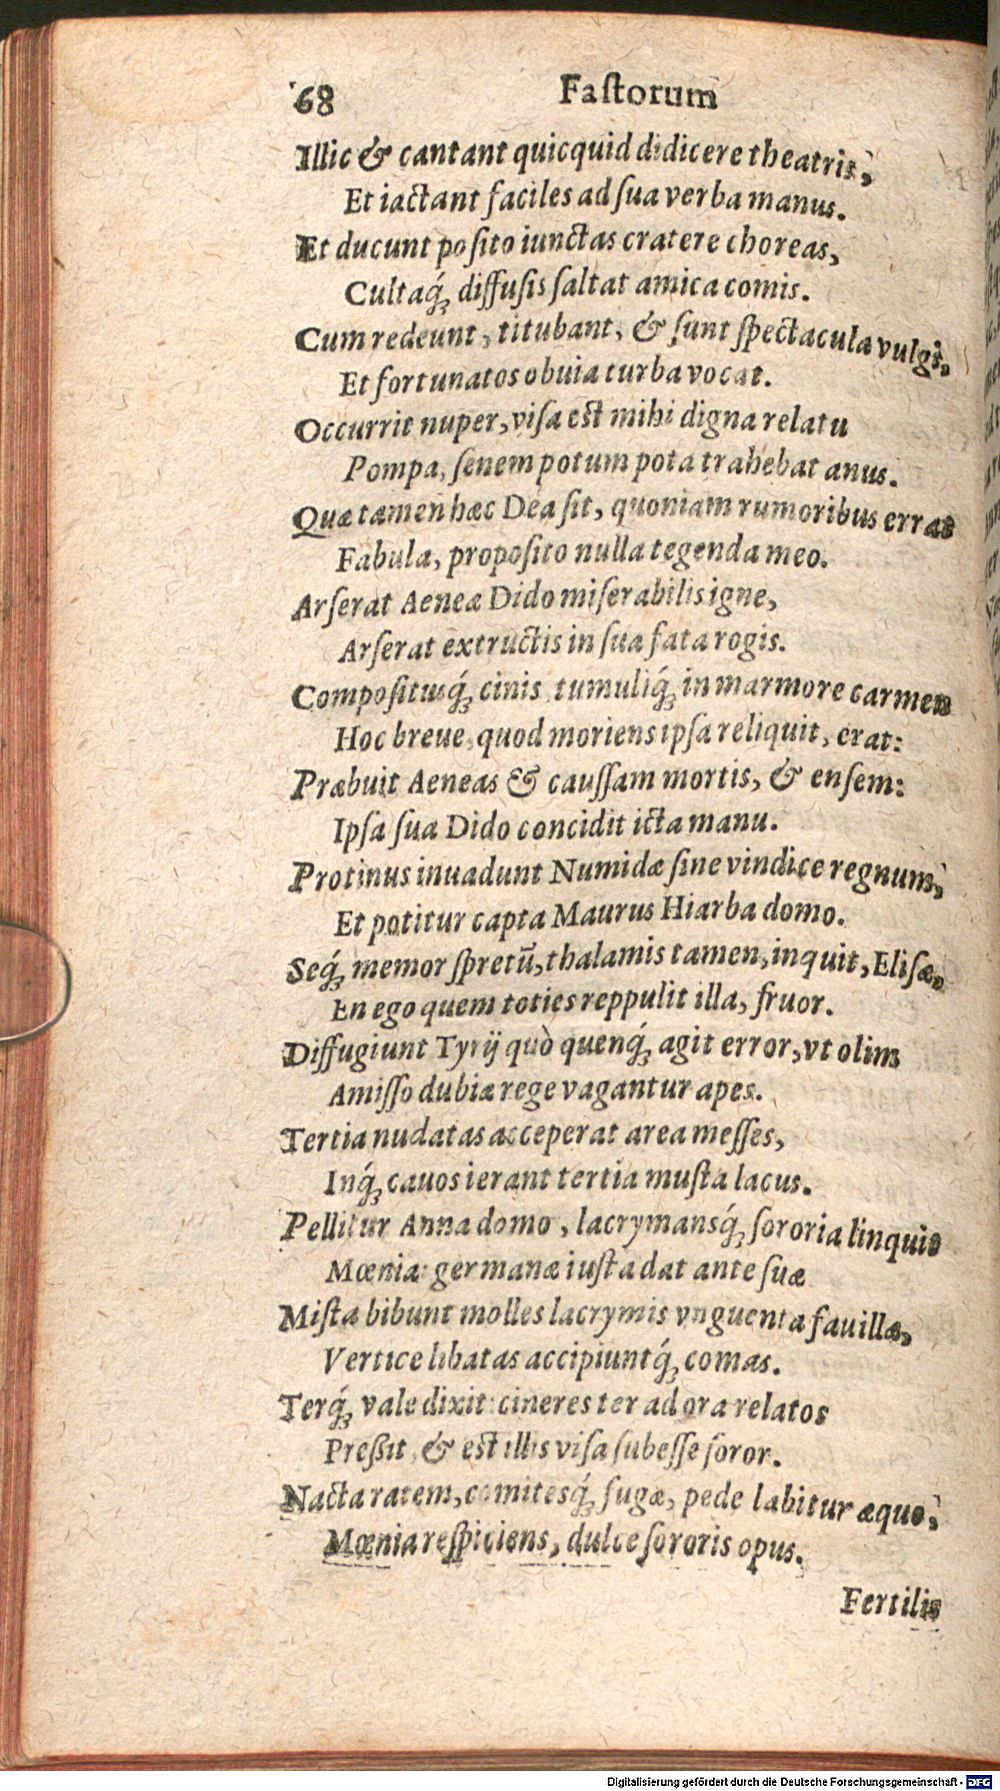 68 Fastorum
Illic & cantant quicquid didicere theatris,
Et iactant faciles ad ſua verba manus.
Et ducunt poſito iunctas cratere choreas,
Cultaq́; diffuſis ſaltat amica comis.
Cum redeunt, titubant, & ſunt ſpectacula vulgi,
Et fortunatos obuia turba vocat.
Occurrit nuper, viſa est mihi digna relatu
Pompa, ſenem potum pota trahebat anus.
Quæ tamen hæc Dea ſit, quoniam rumoribus errat
Fabula, propoſito nulla tegenda meo.
Arſerat Aeneæ Dido miſerabilis igne,
Arſerat extructis in ſua fata rogis.
Compoſitusq́; cinis tumuliq́; in marmore carmen
Hoc breue, quod moriens ipſa reliquit, erat:
Præbuit Aeneas & cauſſam mortis, & enſem:
Ipſa ſua Dido concidit icta manu.
Protinus inuadunt Numidæ ſine vindice regnum,
Et potitur capta Maurus Hiarba domo.
Seq́; memor ſpretū, thalamis tamen, inquit, Eliſæ,
En ego quem toties reppulit illa, fruor.
Diffugiunt Tyrij quò quenq́; agit error, vt olim
Amiſſo dubiæ rege vagantur apes.
Tertia nudatas acceperat area meſſes,
Inq́; cauos ierant tertia muſta lacus.
Pellitur Anna domo, lacrymansq́; ſororia linquit
Mœnia: germanæ iuſta dat ante ſuæ
Miſta bibunt molles lacrymis vnguenta fauillæ,
Vertice libatas accipiuntq́; comas.
Terq́; vale dixit: cineres ter ad ora relatos
Preßit, & est illis viſa ſubeſſe ſoror.
Nacta ratem, comitesq́; fugæ, pede labitur æquo,
Mœnia reſpiciens, dulce ſororis opus.
Fertilis
Digitalisierung gefördert durch die Deutsche Forschungsgemeinschaft - DFG